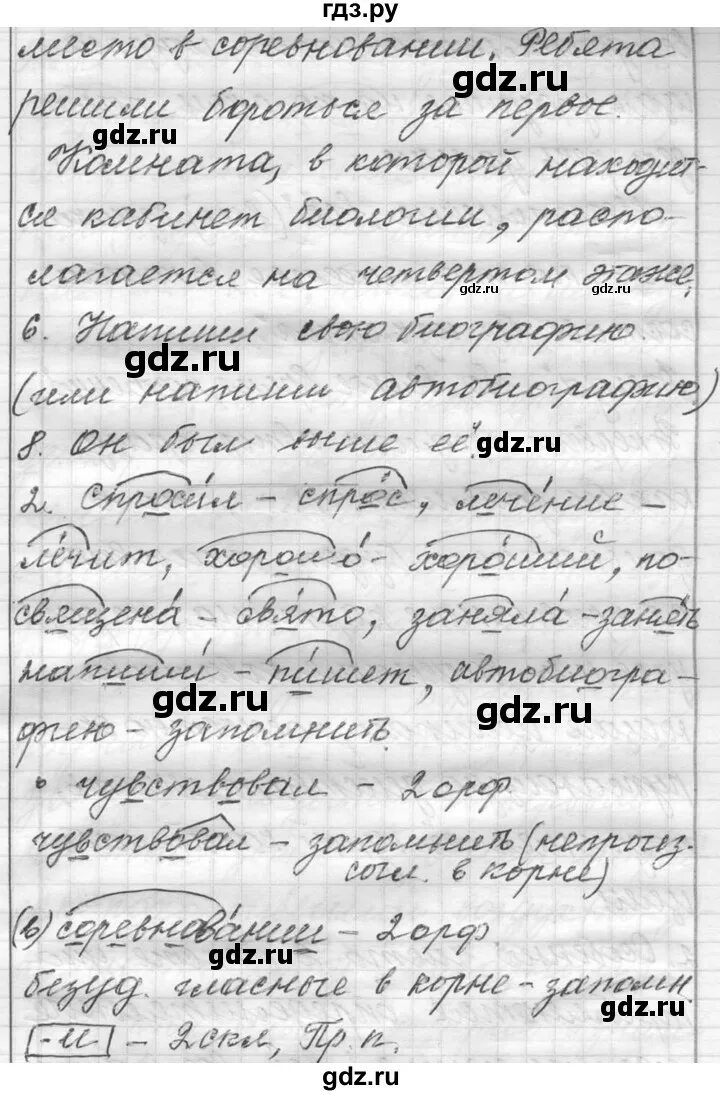 гдз.ру
место в соревновании. Ребята
решили бороться за первое.
gdz.ru
gdz.ru
Комната, в которой находит-
ся кабинет биологии, распо-
gdz.ru
лагается на четвертом этаже.
gdz.ru
gdz.ru
6. Напиши свою биографию.
gdz.ru
(или напиши автобиографию)
8. Он был выше её.
gdz.ru
2. спросил – спро́с, лечение –
ле́чит, хорошо́ – хоро́ший, по-
gdz.ru
священа́ – свя́то, заняла́ – заня́ть
напиши́ – пи́шет, автобиогра-
gdz.ru
gdz.ru
фию – запомнить.
чувствовал – 2 орф.
gdz.ru
чувствовал – запомнить (непроиз.
согл. в корне)
(в) соревнова́нии – 2 орф
gdz.ru
безуд. гласные в корне – запомн.
gdz.ru
-и – 2 скл., Пр. п.
gdz.ru
gdz.ru